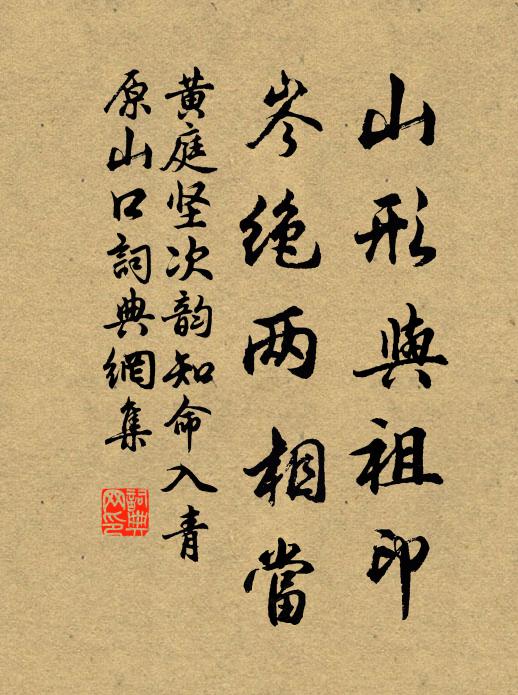 山形與祖印
岑绝两相當
黄庭坚次韵知命入青
原山口詞典網集
詞典网印